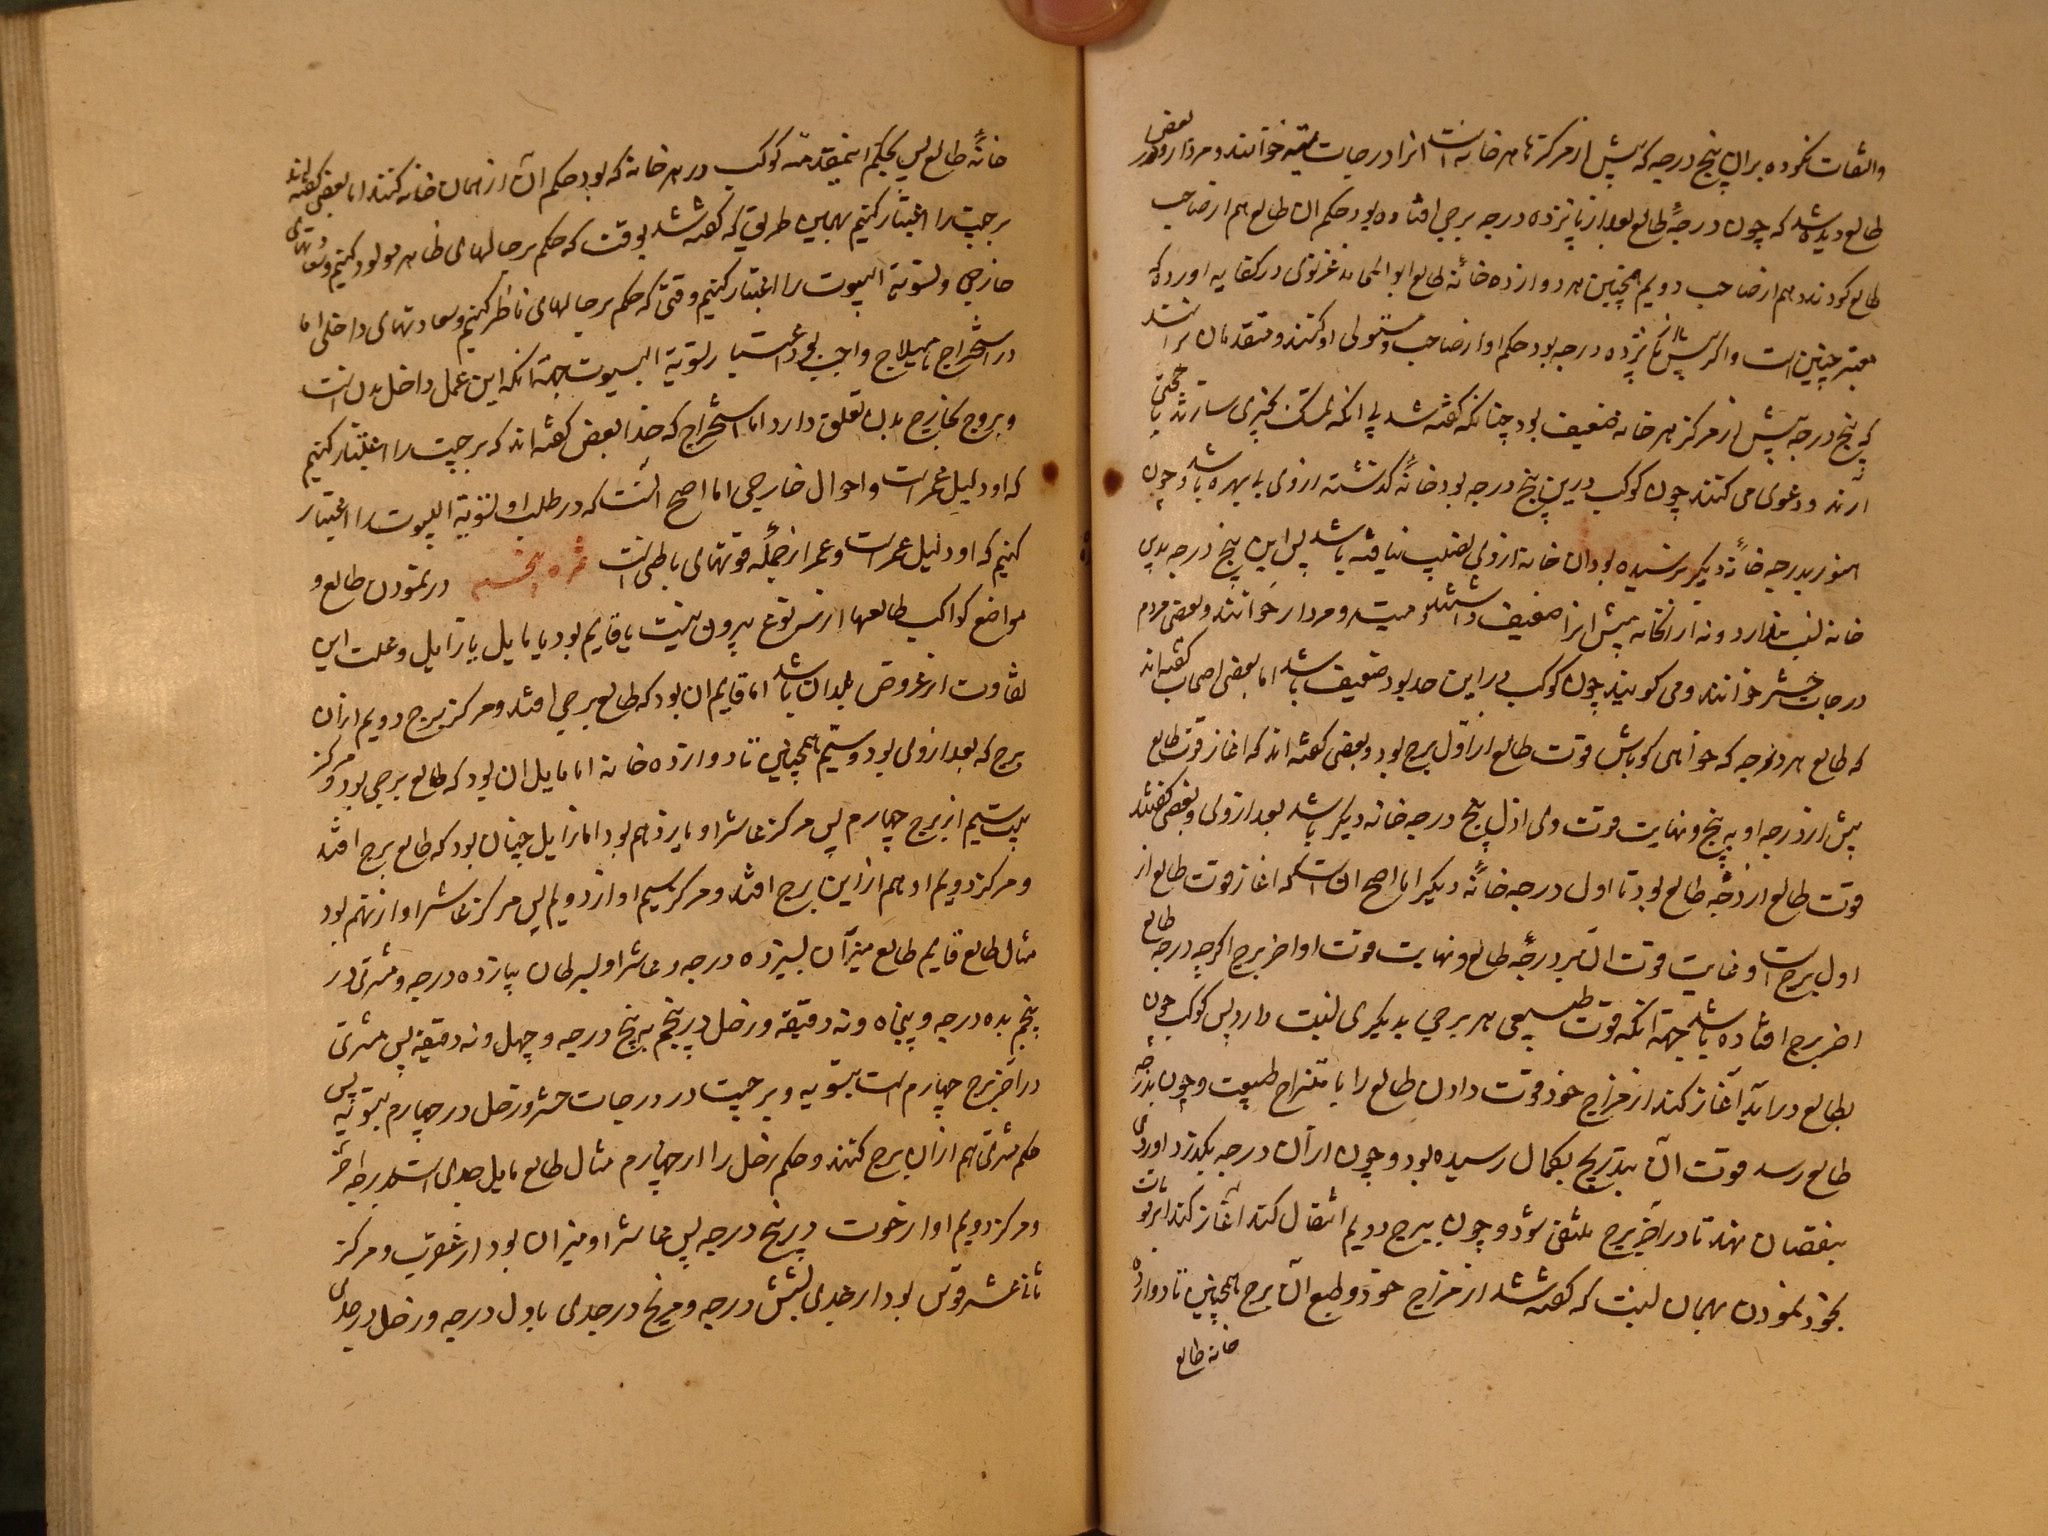 والتفات نکرده بران پنج درجه که پیش از مرکزتا هر خانه است انرا درجات میته خوانند و مردار و بعضی در
طالع دیده شد که چون درجهٔ طالع بعد از پانزده درجه برجی افتاده بود حکم ان طالع هم از صاحب
طالع کردند و هم از صاحب دویم همچنین هر دوازده خانهٔ طالع ابوالمحامد غزنوی در کفایه اورده که
معتبر چنین است واکر پیش از پانزده درجه بود حکم او از صاحب و مستولی او کنند و متقدمان برانند
که پنج درجه پیش از مرکز هر خانه ضعیف بود چنانکه کفته شد بی انکه تمسک بچیزی سازند یا حجتی
ارند و دعوی می کنند چون کوکب درین پنج درجه بود خانهٔ کذشته ازوی بی بهره باشد و چون
هنوز بدرجه خانهٔ دیکر نرسیده بود ان خانه ازوی نصیب نیافته باشد پس این پنج درجه بدین
خانه نسبت ندارد و نه از انخانه پیش انرا ضعیف داشتند و میته و مردار خوانند و بعضی مردم
درجات حشر خوانند و می کویند چون کوکب درین حد بود ضعیف باشد اما بعضی اصحاب کفته اند
که طالع هر درجه که خواهی کو باش قوت طالع از اول برج بود و بعضی کفته اند که اغاز قوت طالع
پیش از درجه او به پنج و نهایت قوت وی اول پنج درجه خانه دیکر باشد بعد ازوی و بعضی کفتند
قوت طالع از درجه طالع بود تا اول درجه خانهٔ دیکر اما اصح انست که اغاز قوت طالع از
اول برج است و غایت قوت ان بر درجهٔ طالع و نهایت قوت اواخر برج اکرچه درجه طالع
اخر برج افتاده باشد جهة انکه قوت طبیعی هر برجی بدیکری نسبت دارد پس کوکب چون
بطالع دراید آغاز کند از مزاج خود قوت دادن طالع را با متزاج طبیعت و چون بدرجه
طالع رسد قوت آن بتدریج بکمال رسیده بود و چون ازان درجه بکذرد اوردی
بنقصان نهد تا در آخر برج منتفی شود و چون ببرج دویم انتقال کند آغاز کند اثر قوت
بخود نمودن بهمان نسبت که کفته شد از مزاج خود و طبع آن برج همچنین تا دوازده
خانه طالع
خانهٔ طالع پس بحکم اینمقدمه کوکب در هر خانه که بود حکم آن از همان خانه کنند اما بعضی کفته اند
برجیت را اعتبار کنیم بهمین طریق که کفته شد بوقت که حکم بر حالهای ظاهر مولود کنیم و سعادتهای
خارجی و تسویة البیوت را اعتبار کنیم وقتی که حکم بر حالهای ناظر کنیم و سعادتهای داخلی اما
در استخراج هیلاج واجب بود اعتبار تسویة البیوت جهة انکه این عمل داخل بدن است
و بروج بخارج بدن تعلق دارد اما استخراج کدخدا بعضی کفته اند که برجیت را اعتبار کنیم
که او دلیل عمر است و احوال خارجی اما اصح انست که در طلب او تسویة البیوت را اعتبار
کنیم که او دلیل عمر است و عمر از جملهٔ قوتهای باطن است ثمره پنجم در نمودن طالع و
مواضع کواکب طالعها از سه نوع بیرون نیست یا قایم بود یا مایل یا زایل و علت این
تفاوت از عروض بلدان باشد اما قایم ان بود که طالع برجی افتد و مرکز برج دویم ازان
برج که بعد ازوی بود و سیم همچنین تا دوازده خانه اما مایل ان بود که طالع برجی بود و مرکز
بیت سیم از برج چهارم پس مرکز عاشر او یازدهم بود اما زایل چنان بود که طالع برج افتد
و مرکز دویم او هم ازاین برج افتد و مرکز سیم او از دویم پس مرکز عاشر او از نهم بود
مثال طالع قایم طالع میزان بسیزده درجه و عاشر او بسرطان بپانزده درجه و مشتری در
پنجم بده درجه و پنجاه و نه دقیقه و زحل در پنجم به پنج درجه و چهل و نه دقیقه پس مشتری
در آخر برج چهارم است بتسویه و برجیت در درجات حشر و زحل در چهارم بتسویه پس
حکم مشتری هم ازان برج کنند و حکم زحل را از چهارم مثال طالع مایل جدی است بدرجه آخر
و مرکز دویم او از حوت به پنج درجه پس عاشر او میزان بود از عقرب و مرکز
ثانی عشر قوس بود از جدی بشش درجه و مریخ در جدی باول درجه و زحل در جدی